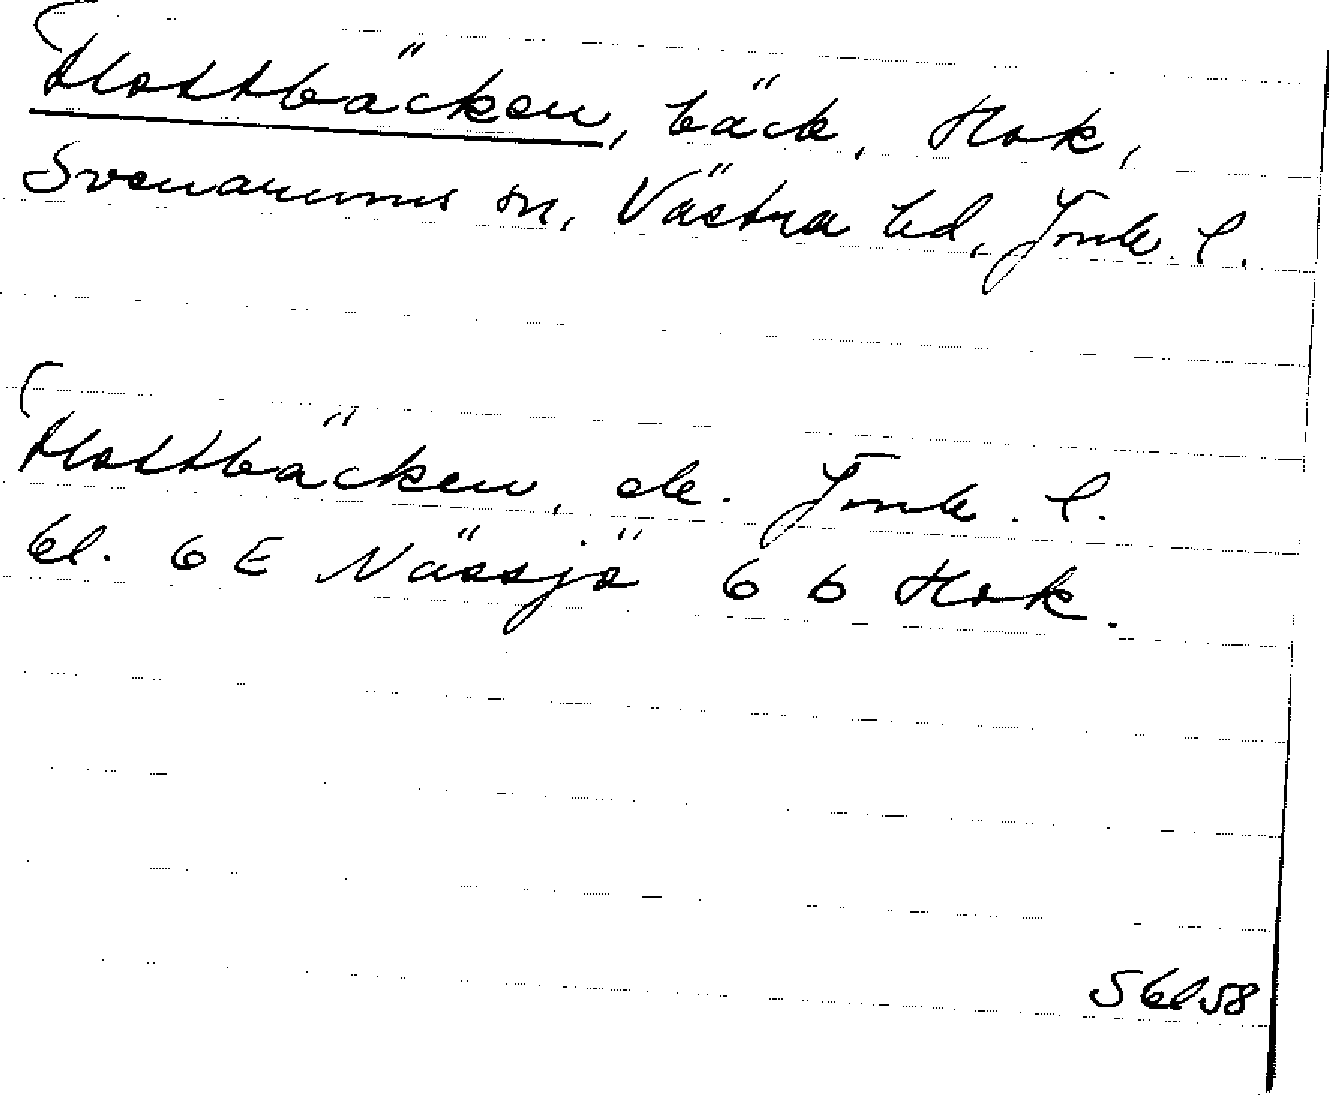 Flottbäcken, bäck, Hok,
Svenarums sn, Västra hd, Jönk. l.
Flottbäcken, ek. Jönk. l.
bl. 6 E Nässjö 6 b Hok.